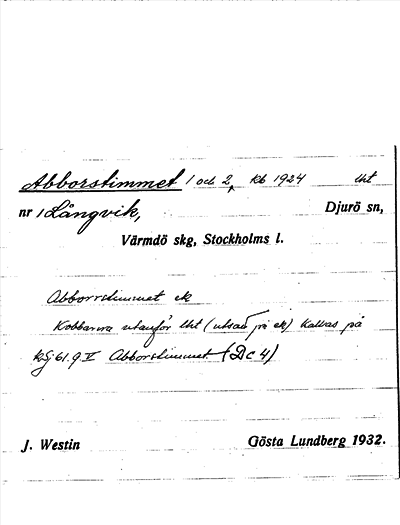 Abborstimmet 1 och 2, kb 1924 lht
nr 1 Långvik, Djurö sn,
Värmdö skg, Stockholms l.
Abborrstimmet ek
Kobbarna utanför lht (utsatt på ek) kallas på
61.9.V Abborstimmet (Dc4)
J. Westin Gösta Lundberg 1932.